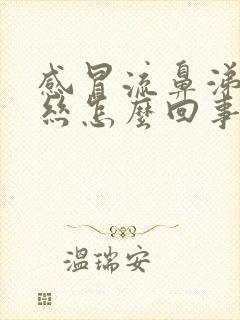 感冒流鼻涕
丝怎麼回事
温瑞安